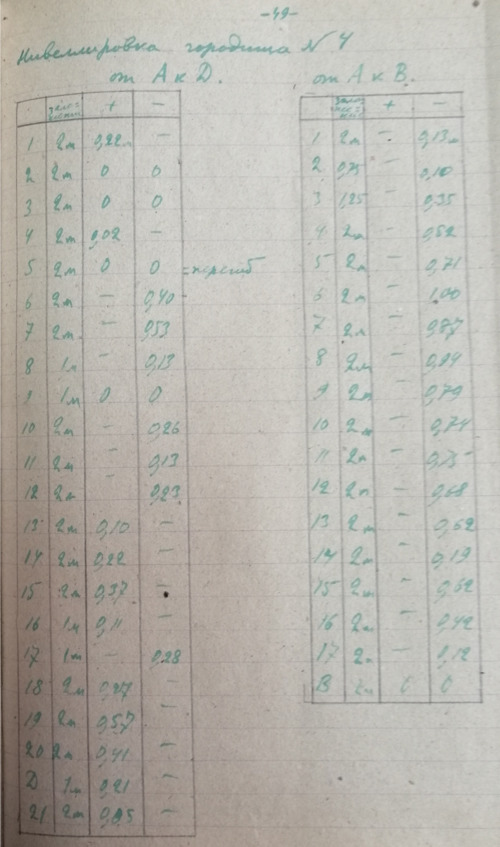 -49-
Нивеллировка городища N 4
от А к D.
от А к В.
+ -
1 2м 0,22м -
2 2м 0 0
3 2м 0 0
4 2м 0,02 -
5 2м 0 0 = перегиб
6 2м - 0,40
7 2м - 0,53
8 1м - 0,13
9 1м 0 0
10 2м - 0,26
11 2м - 0,13
12 2м - 0,23
13 2м 0,10 -
14 2м 0,22 -
15 2м 0,37 -
16 1м 0,11 -
17 1м - 0,28
18 2м 0,27 -
19 2м 0,57 -
20 2м 0,41 -
D 1м 0,21 -
21 2м -
+ -
1 2м - 0,13м
2 0,75 - 0,10
3 1,25 - 0,35
4 2м - 0,52
5 2м - 0,71
6 2м - 1,00
7 2м - 0,87
8 2м -
9 2м - 0,79
10 2м - 0,74
11 2м - 0,75
12 2м - 0,68
13 2м - 0,62
14 2м - 0,19
15 2м - 0,62
16 2м - 0,42
17 2м - 0,12
В 2м 0 0